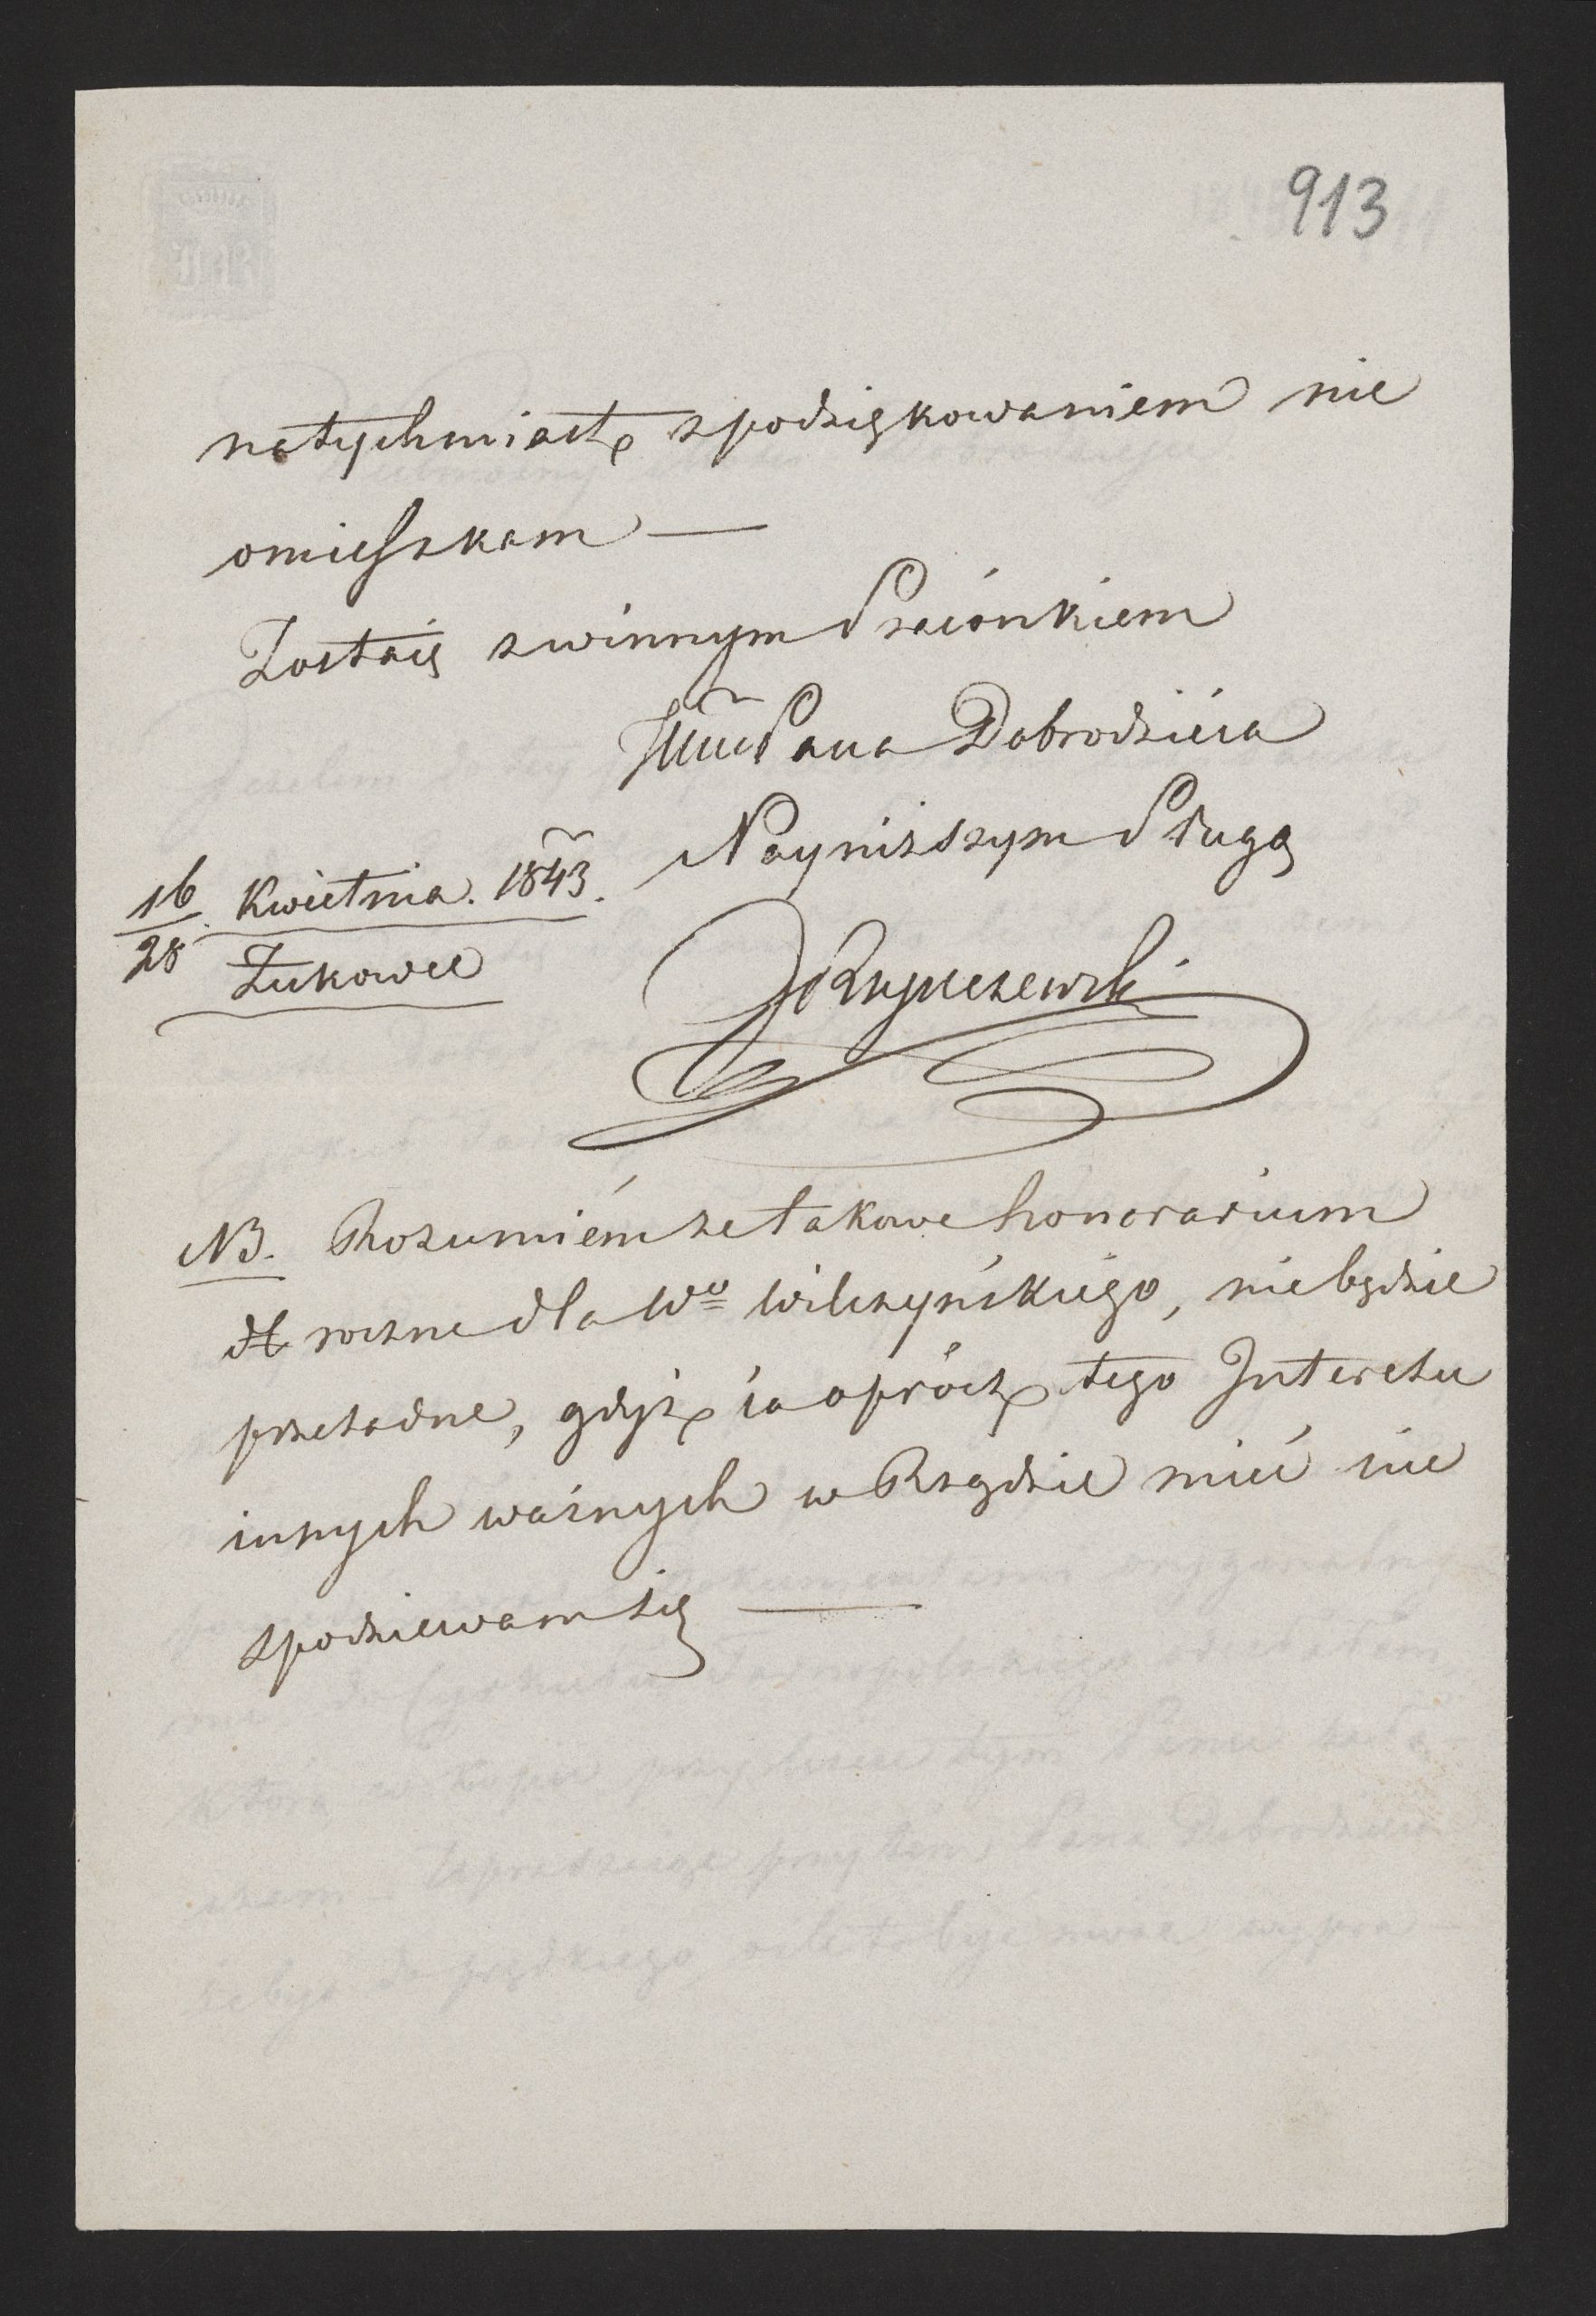 913
natychmiast z podziękowaniem nie
omieszkam —
Zostaię z winnym Szacunkiem
JWW Pana Dobrodzieia
Nayniższym Sługą
16/28 Kwietnia. 1843.
Żukowce
NB. Rozumiém że takowe honorarium
roczne dla Wo Wilczyńskiego, nie będzie
przesadne, gdyż ia oprócz tego Interesu
innych ważnych w Rządzie mieć nie
spodziewam się —